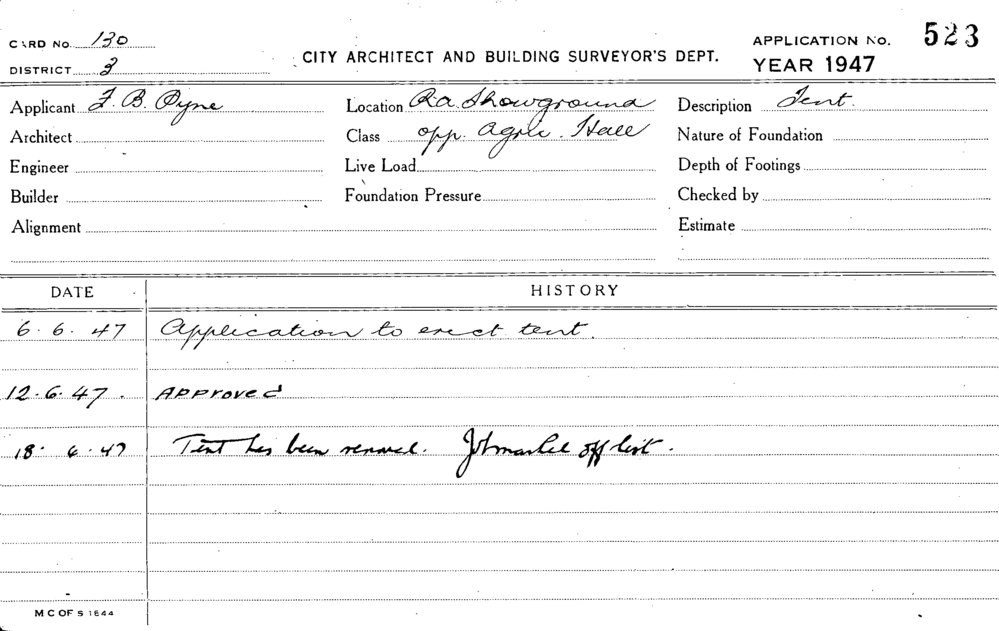 CARD No. 130
CITY ARCHITECT AND BUILDING SURVEYOR'S DEPT.
APPLICATION No. 523
DISTRICT 3
YEAR 1947
Applicant F. B. Pyne
Location R.a. Showground
Description Tent.
Architect
Class opp. Agric. Hall
Nature of Foundation
Engineer
Live Load
Depth of Footings
Builder
Foundation Pressure
Checked by
Alignment
Estimate
DATE
HISTORY
6. 6. 47 Application to erect tent.
12. 6. 47. Approved
18. 6. 47 Tent has been removed. Job marked off list.
M C OF S 1844